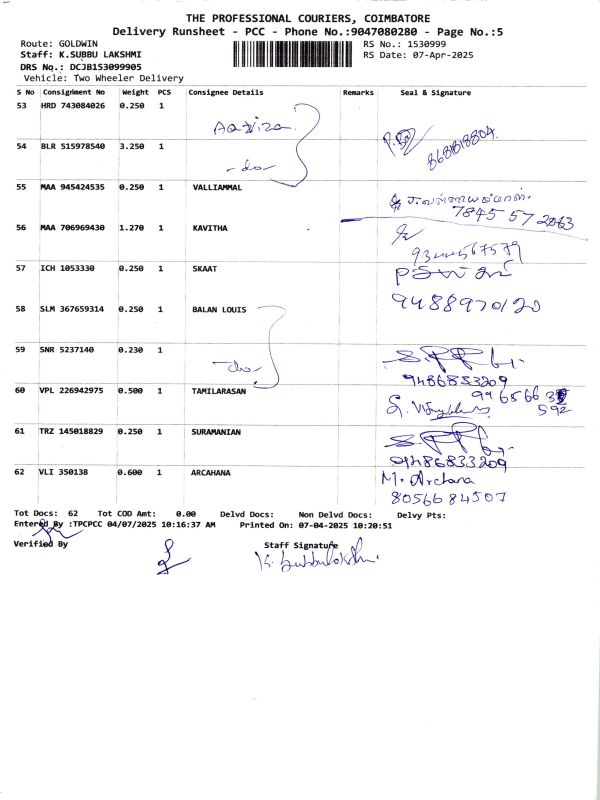 THE PROFESSIONAL COURIERS, COIMBATORE
Delivery Runsheet - PCC - Phone No.:9047080280 - Page No.:5
Route: GOLDWIN RS No.: 1530999
Staff: K.SUBBU LAKSHMI RS Date: 07-Apr-2025
DRS No.: DCJB153099905
Vehicle: Two Wheeler Delivery
S No Consignment No Weight PCS Consignee Details Remarks Seal & Signature
53 HRD 743084026 0.250 1
54 BLR 515978540 3.250 1 -do-
55 MAA 945424535 0.250 1 VALLIAMMAL
7845 57 2063
56 MAA 706969430 1.270 1 KAVITHA
57 ICH 1053330 0.250 1 SKAAT
58 SLM 367659314 0.250 1 BALAN LOUIS 9488970120
59 SNR 5237140 0.230 1 -do-
9486833209
60 VPL 226942975 0.500 1 TAMILARASAN
61 TRZ 145018829 0.250 1 SURAMANIAN
9486833209
62 VLI 350138 0.600 1 ARCAHANA M. Archana
8056684507
Tot Docs: 62 Tot COD Amt: 0.00 Delvd Docs: Non Delvd Docs: Delvy Pts:
Entered By :TPCPCC 04/07/2025 10:16:37 AM Printed On: 07-04-2025 10:20:51
Verified By Staff Signature
K. Subbulakshmi